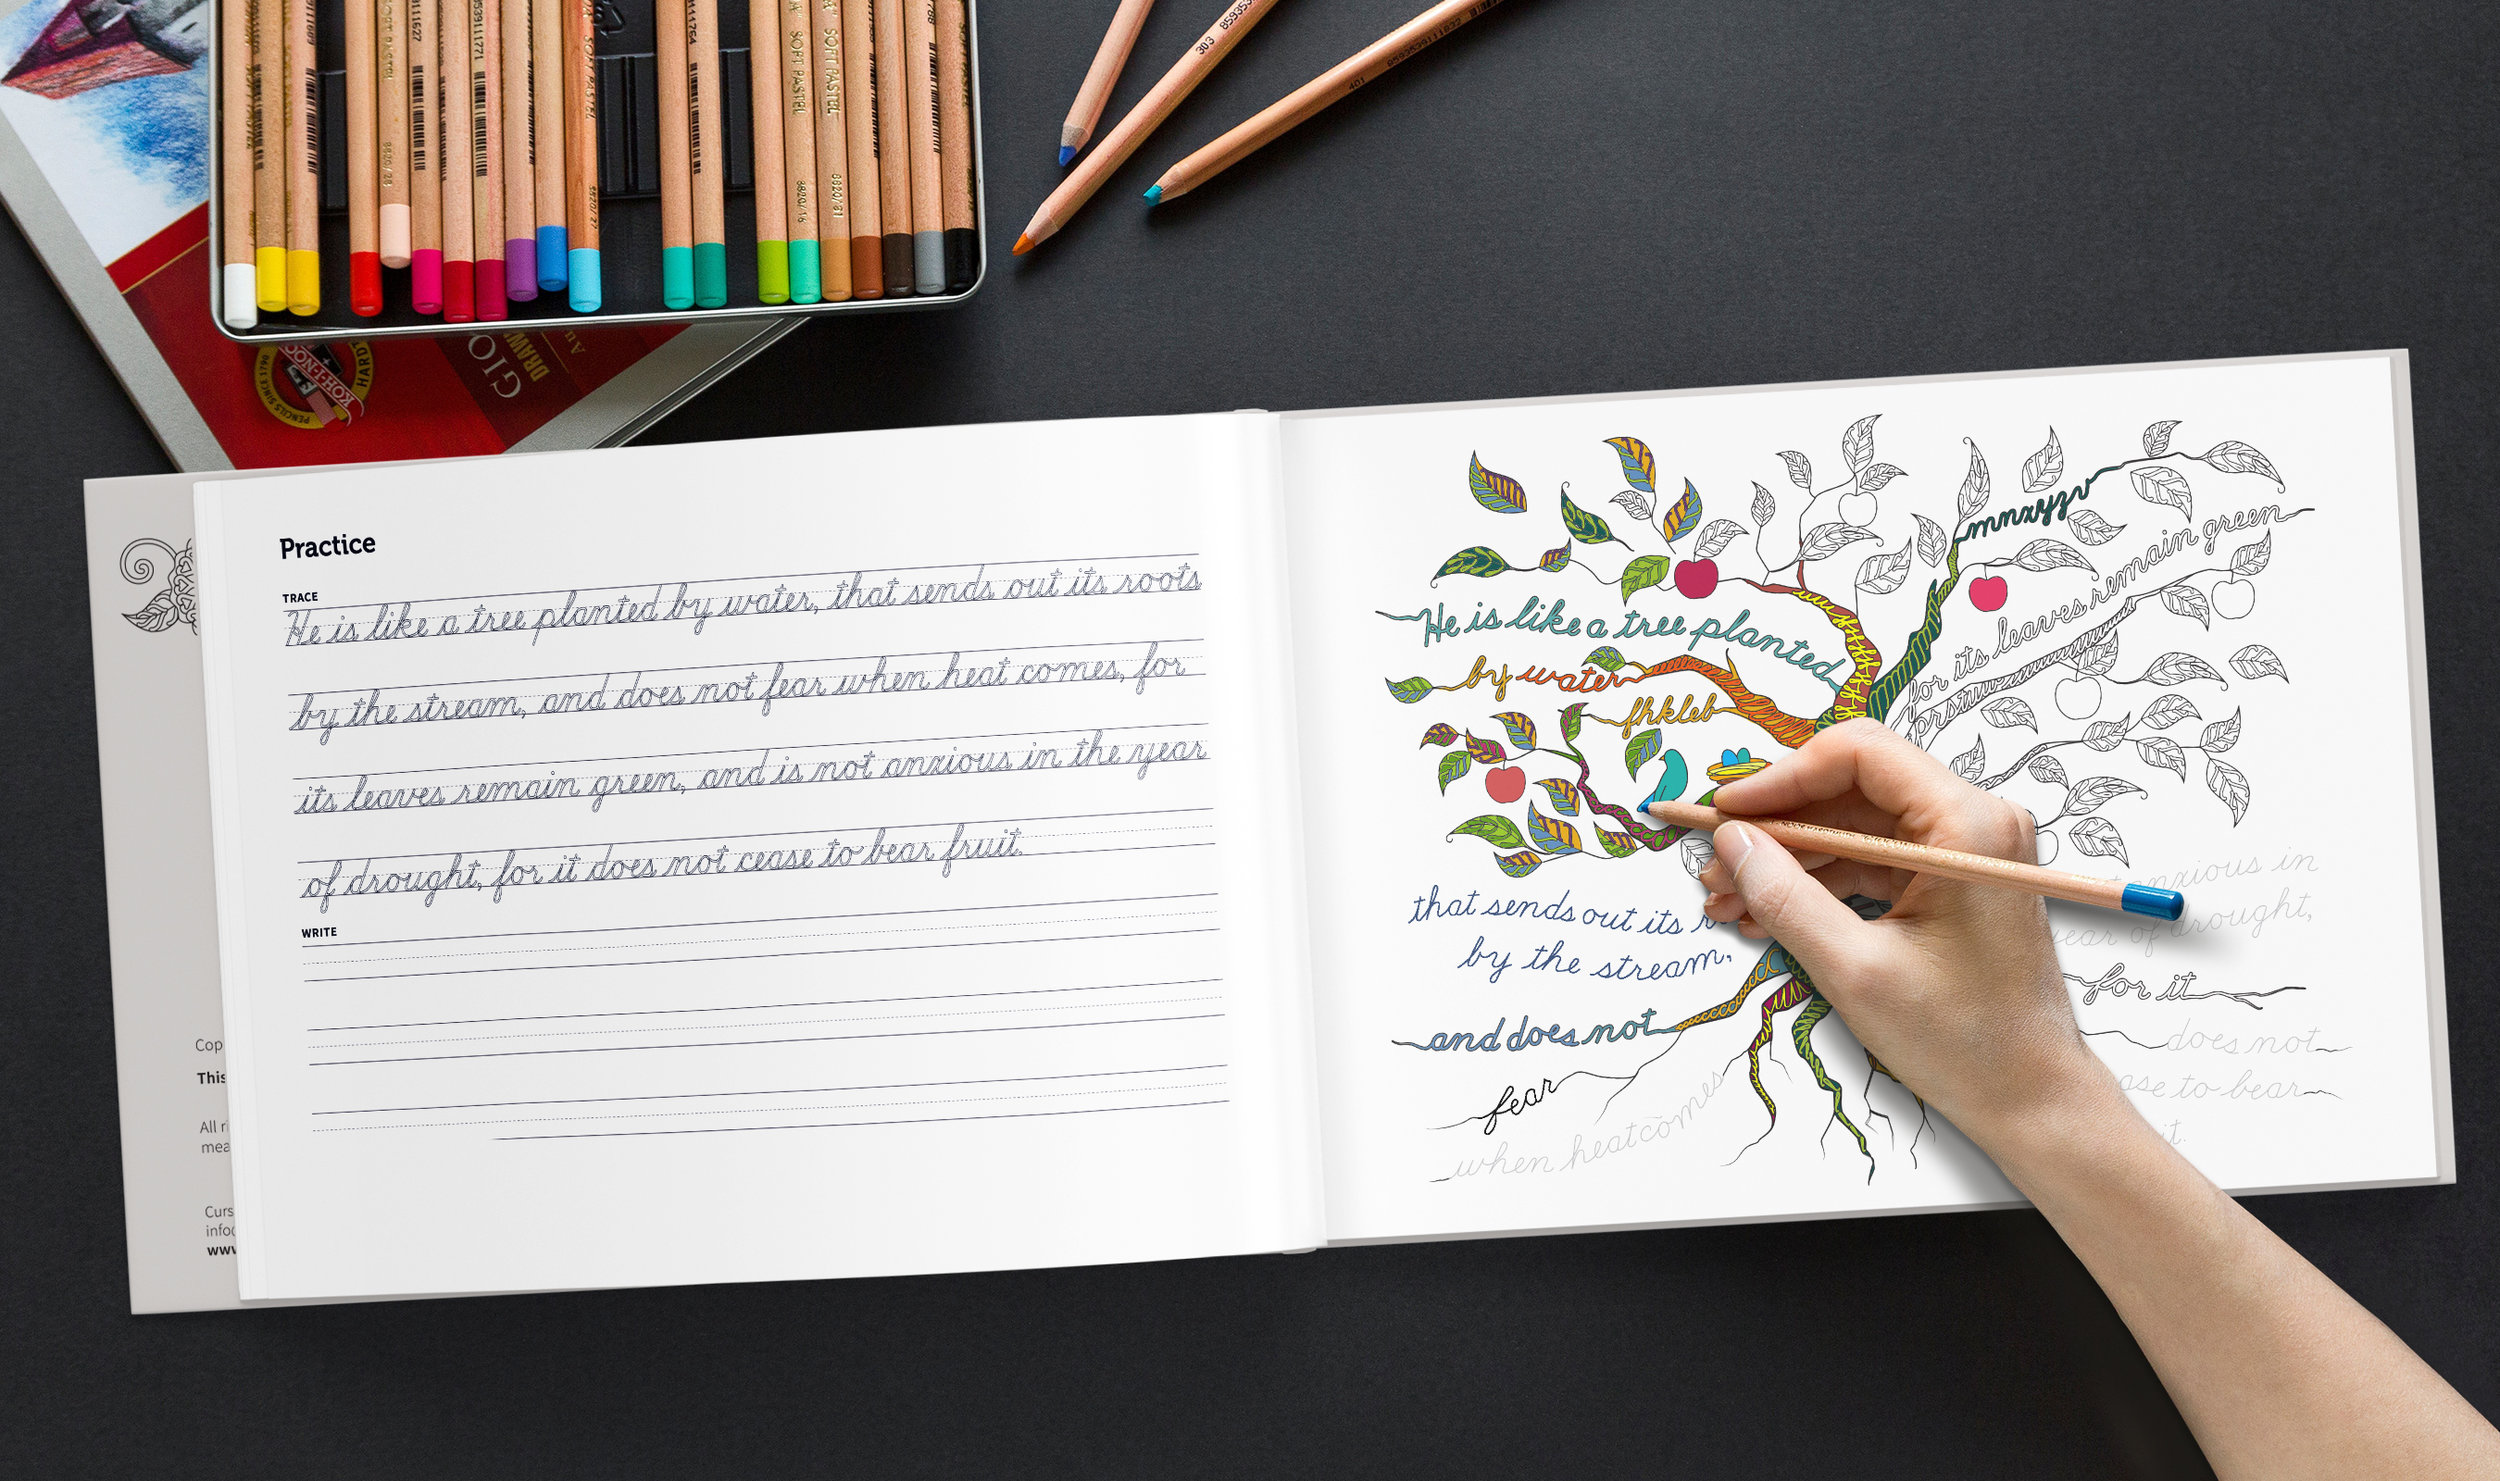 SOFT PASTEL
SOFT PASTEL
SOFT PASTEL
8820/16
303
401
KOH-I-NOOR
HARDT
PENCILS SINCE 1790
GIO
DRAW
Practice
TRACE
He is like a tree planted by water, that sends out its roots
by the stream, and does not fear when heat comes, for
its leaves remain green, and is not anxious in the year
of drought, for it does not cease to bear fruit.
WRITE
Cop
This
All ri
mea
Curs
info
www
mnxyzv
He is like a tree planted
by water
fhkleb
for its leaves remain green
prstuw
that sends out its r
by the stream,
and does not
fear
when heat comes
anxious in
year of drought,
for it
does not
ase to bear
it.